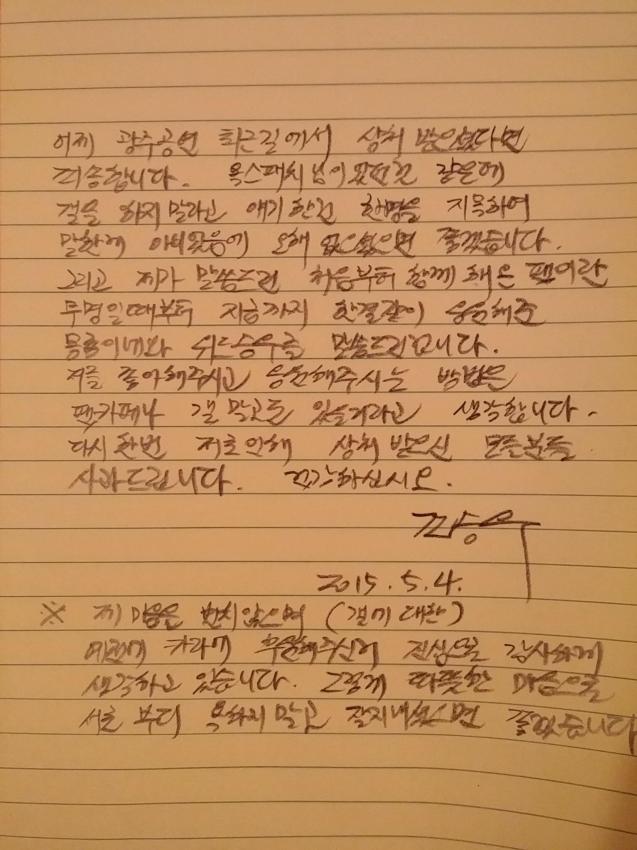 어제 광주공연 퇴근길에서 상처 받으셨다면
죄송합니다. 욕스패치님이
걸을 하지말라고 얘기한건 한명을 지목하여
말한게 아니었음에 오해 없으셨으면 좋겠습니다.
그리고 제가 말씀드린 처음부터 함께 해온 팬이란
무명일때부터 지금까지 한결같이 응원해준
위드승우를 말씀드린겁니다.
저를 좋아해주시고 응원해주시는 방법은
팬카페나 갤 말고도 있을거라고 생각합니다.
다시한번 저로인해 상처 받으신 모든분들
사과드립니다. 건강하십시오.
2015.5.4.
※ 제 마음은 변치않으며 (갤에 대한)
예전에 카라에 후원해주신거 진심으로 감사하게
생각하고 있습니다. 그렇게 따뜻한 마음으로
서로 부디 욕하지말고 잘지내셨으면 좋겠습니다